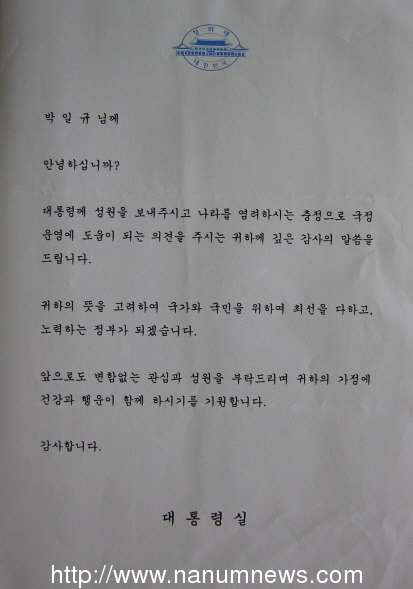 청와대
대한민국
박 일 규 님께
안녕하십니까?
대통령께 성원을 보내주시고 나라를 염려하시는 충정으로 국정
운영에 도움이 되는 의견을 주시는 귀하께 깊은 감사의 말씀을
드립니다.
귀하의 뜻을 고려하여 국가와 국민을 위하여 최선을 다하고,
노력하는 정부가 되겠습니다.
앞으로도 변함없는 관심과 성원을 부탁드리며 귀하의 가정에
건강과 행운이 함께 하시기를 기원합니다.
감사합니다.
대 통 령 실
http://www.nanumnews.com